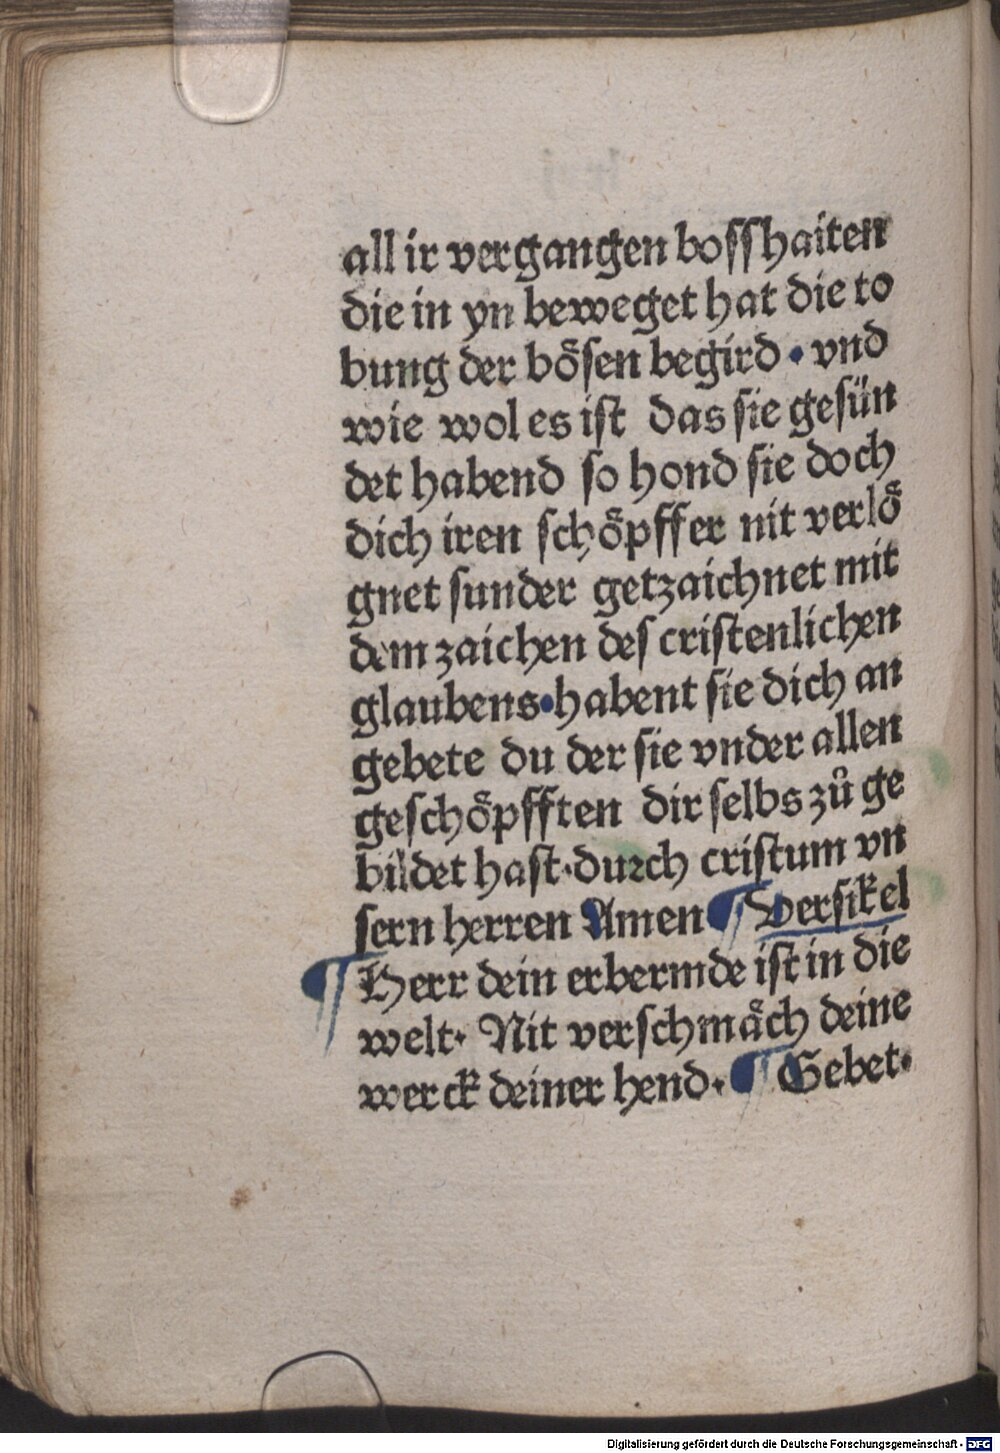 all ir vergangen bosſhaiten
die in yn beweget hat die to
bung der bo&#868;ſen begird • vnd
wie wol es iſt das ſie geſün
det habend ſo hond ſie doch
dich iren ſchoͤpffer nit verloͤ
gnet ſunder getzaichnet mit
dem zaichen des criſtenlichen
glaubens•habent ſie dich an
gebete du der ſie vnder allen
geſchoͤpfften dir ſelbs zů ge
bildet haſt·durch criſtum vn
ſern herren Amen ¶ Verſikel
¶ Herr dein erbermde iſt in die
welt· Nit verſchmaͤch deine
werck deiner hend· ¶ Gebet·
Digitalisierung gefördert durch die Deutsche Forschungsgemeinschaft - DFG